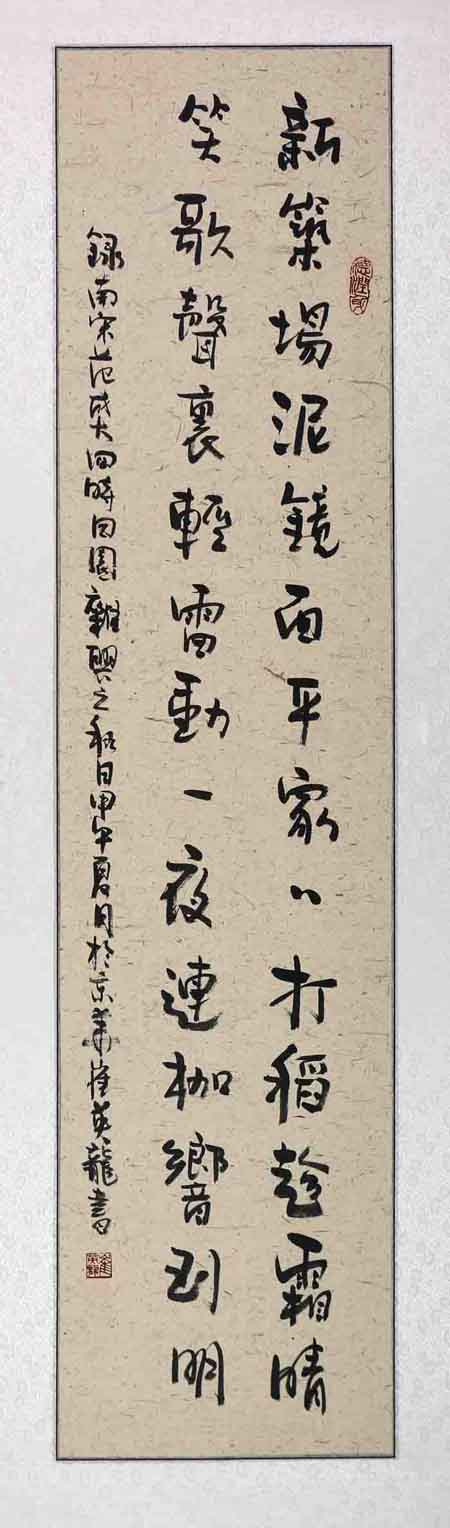 新築場泥鏡面平家〻打稻趁霜晴
笑歌聲裏輕雷動一夜連枷響到明
録南宋范成大四時田園雜興之秋日甲午夏月於京華崔英龍書